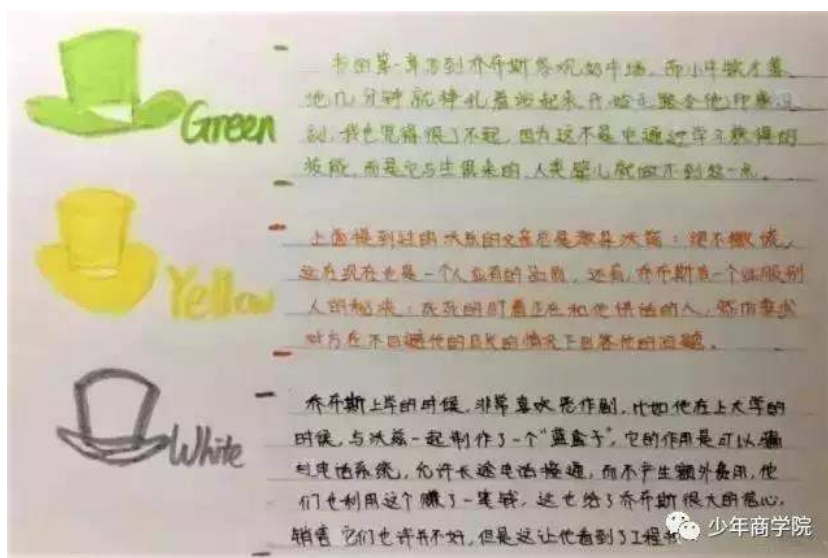 Green
书的第一章写到乔布斯参观奶牛场，而小牛
他几分钟就挣扎着站起来开始走路令他印象深
刻，我也觉得很了不起，因为这不是它通过学习获得的
技能，而是它与生俱来的，人类婴儿就做不到这一点。
Yellow
上面提到过的沃兹的父亲总是教导沃兹：绝不撒谎。
这在现在也是一个人应有的品质，还有，乔布斯有一个说服别
人的秘诀：死死的盯着正在和他讲话的人，然而要求
对方在不回避他的目光的情况下回答他的问题。
White
乔布斯上学的时候，非常喜欢恶作剧，比如他在上大学的
时候，与沃兹一起制作了一个“蓝盒子”，它的作用是可以骗
过电话系统，允许长途电话接通，而不产生额外费用，他
们也利用这个赚了一笔钱，这也给了乔布斯很大的信心，
销售它们也许并不好，但是这让他看到了工程
少年商学院